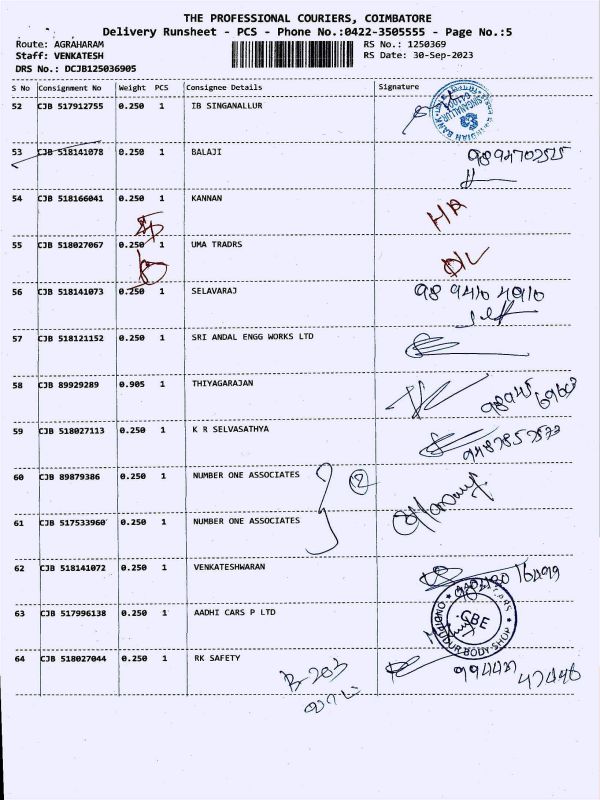 THE PROFESSIONAL COURIERS, COIMBATORE
Delivery Runsheet - PCS - Phone No.:0422-3505555 - Page No.:5
Route: AGRAHARAM RS No.: 1250369
Staff: VENKATESH RS Date: 30-Sep-2023
DRS No.: DCJB125036905
S No Consignment No Weight PCS Consignee Details Signature
52 CJB 517912755 0.250 1 IB SINGANALLUR
INDIAN BANK SINGANALLUR
53 CJB 518141078 0.250 1 BALAJI
54 CJB 518166041 0.250 1 KANNAN
55 CJB 518027067 0.250 1 UMA TRADRS
56 CJB 518141073 0.250 1 SELAVARAJ 98 9410 4910
57 CJB 518121152 0.250 1 SRI ANDAL ENGG WORKS LTD
58 CJB 89929289 0.905 1 THIYAGARAJAN
59 CJB 518027113 0.250 1 K R SELVASATHYA
60 CJB 89879386 0.250 1 NUMBER ONE ASSOCIATES 2
61 CJB 517533960 0.250 1 NUMBER ONE ASSOCIATES
62 CJB 518141072 0.250 1 VENKATESHWARAN
63 CJB 517996138 0.250 1 AADHI CARS P LTD
CBE
ONDIPUDUR BODY SHOP
64 CJB 518027044 0.250 1 RK SAFETY
B-203